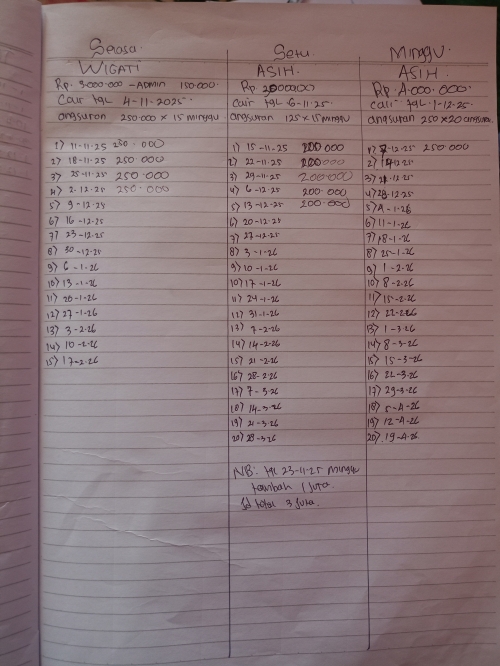 Selasa
WIGATI
Rp. 3.000.000 - Admin 150.000.
Cair tgl 4-11-2025
angsuran 250.000 x 15 minggu
1) 11-11-25 250.000
2) 18-11-25 250.000
3) 25-11-25 250.000
4) 2-12-25 250.000
5) 9-12-25
6) 16-12-25
7) 23-12-25
8) 30-12-25
9) 6-1-26
10) 13-1-26
11) 20-1-26
12) 27-1-26
13) 3-2-26
14) 10-2-26
15) 17-2-26
Setu
ASIH
Rp
cair tgl 6-11-25
angsuran 125 x 15 minggu
1) 15-11-25 200.000
2) 22-11-25 200000
3) 29-11-25 200.000
4) 6-12-25 200.000
5) 13-12-25 200.000
6) 20-12-25
7) 27-12-25
8) 3-1-26
9) 10-1-26
10) 17-1-26
11) 24-1-26
12) 31-1-26
13) 7-2-26
14) 14-2-26
15) 21-2-26
16) 28-2-26
17) 7-3-26
18) 14-3-26
19) 21-3-26
20) 28-3-26
NB: tgl 23-11-25 minggu
tambah 1 juta.
Jd total 3 juta.
Minggu
ASIH
Rp. 4.000.000
cair tgl 1-12-25
angsuran 250 x 20 angsuran
1) 7-12-25 250.000
2) 14-12-25
3) 21-12-25
4) 28-12-25
5) 4-1-26
6) 11-1-26
7) 18-1-26
8) 25-1-26
9) 1-2-26
10) 8-2-26
11) 15-2-26
12) 22-2-26
13) 1-3-26
14) 8-3-26
15) 15-3-26
16) 22-3-26
17) 29-3-26
18) 5-4-26
19) 12-4-26
20) 19-4-26